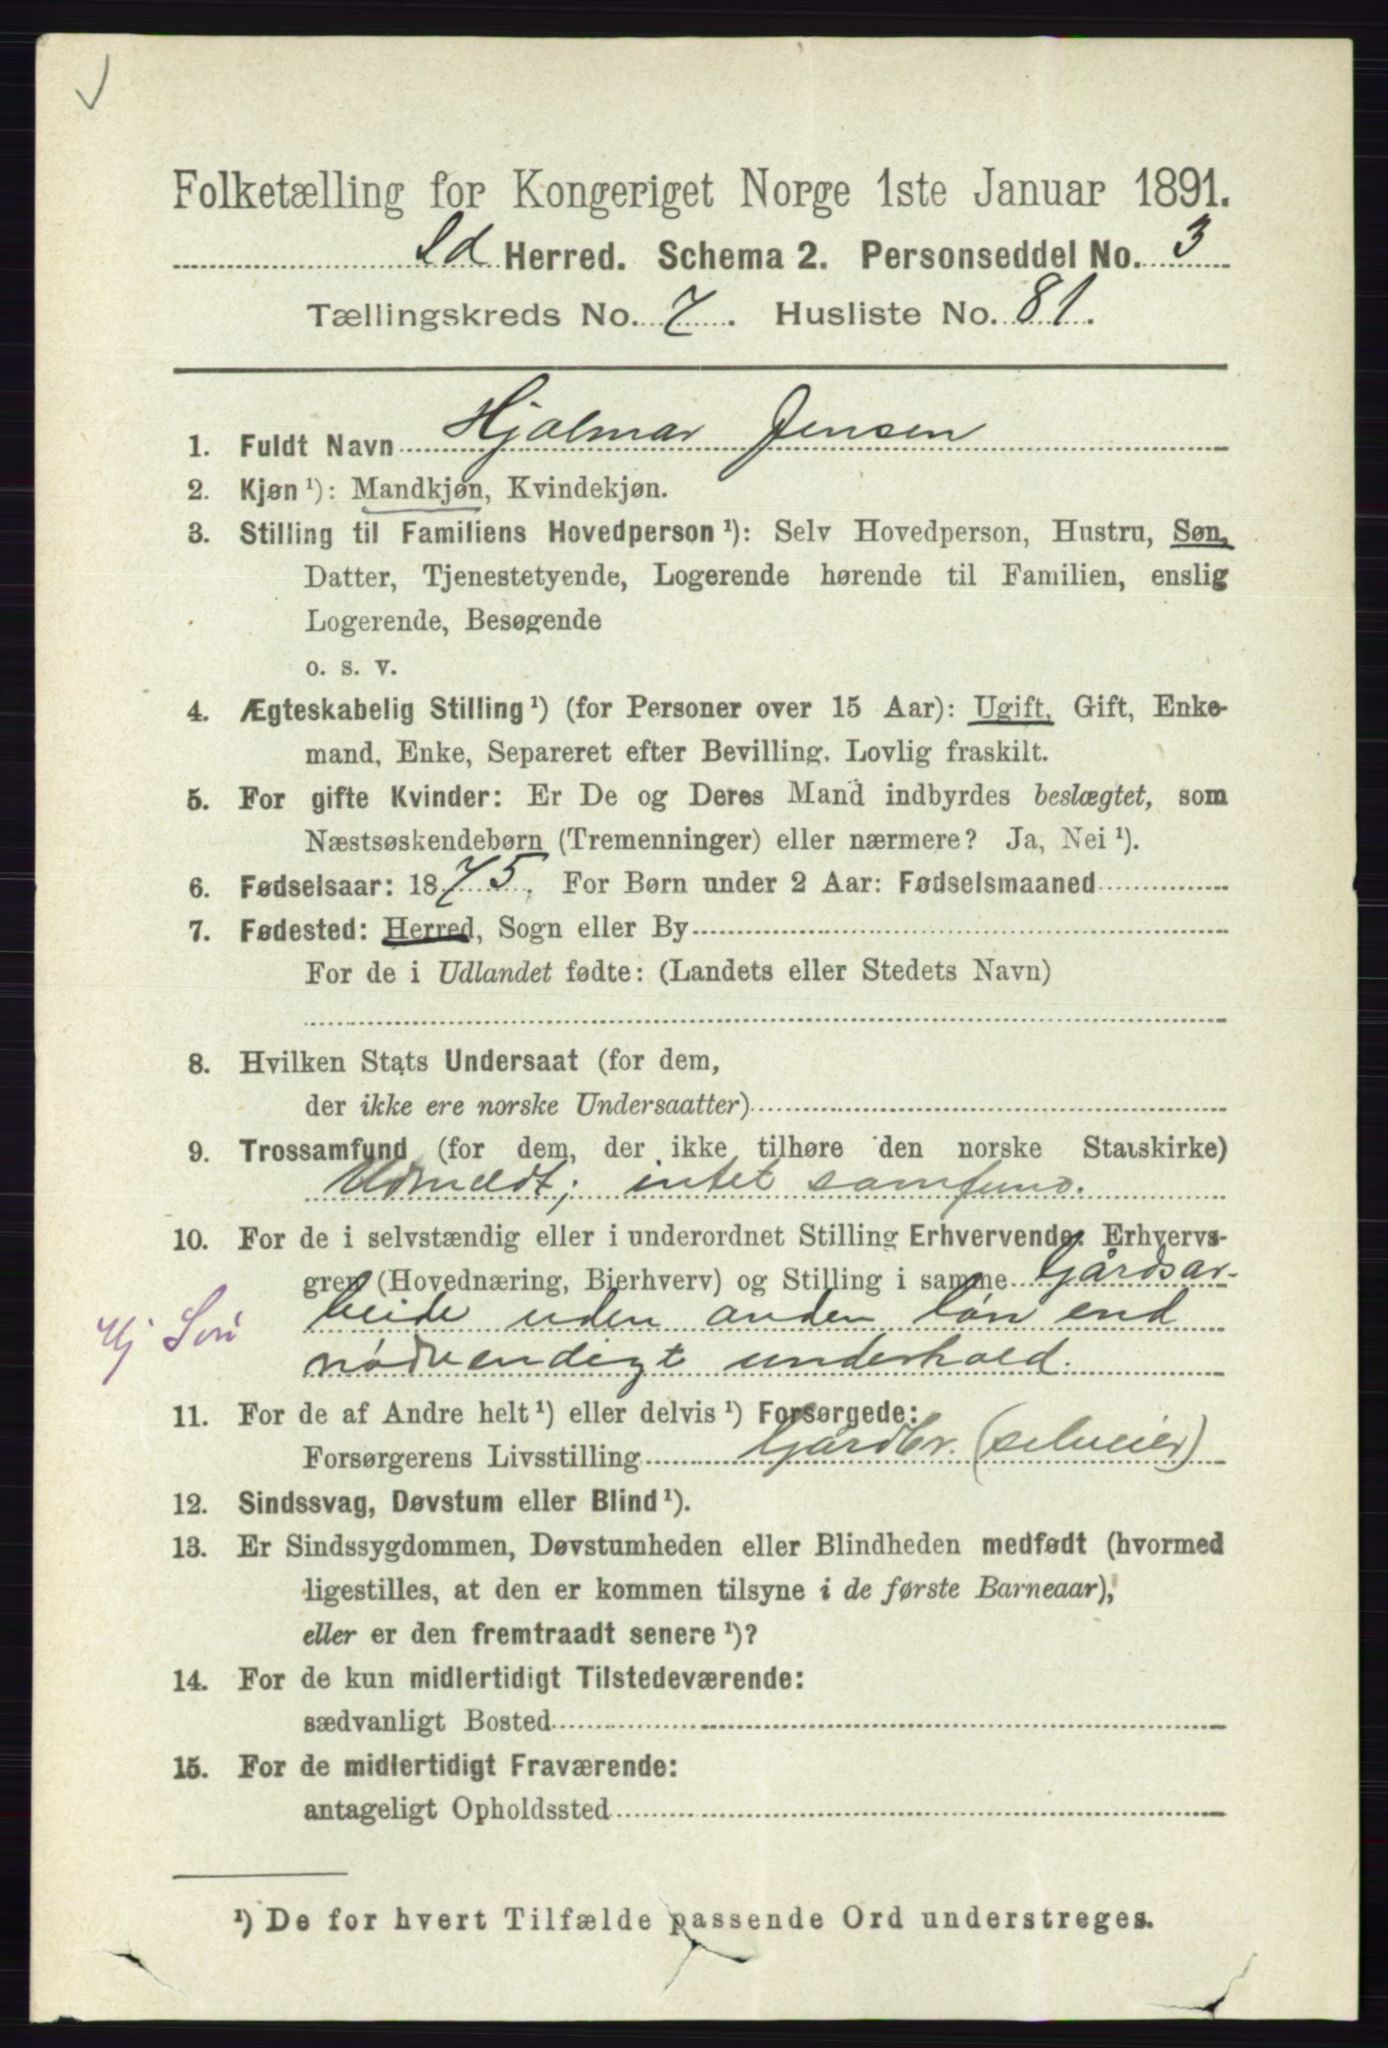 Folketælling for Kongeriget Norge 1ste Januar 1891.
Id Herred. Schema 2. Personseddel No. 3
Tællingskreds No. 7. Husliste No. 81.
1. Fuldt Navn Hjalmar Jensen
2. Kjøn ¹): Mandkjøn, Kvindekjøn.
3. Stilling til Familiens Hovedperson ¹): Selv Hovedperson, Hustru, Søn,
Datter, Tjenestetyende, Logerende hørende til Familien, enslig
Logerende, Besøgende
o. s. v.
4. Ægteskabelig Stilling ¹) (for Personer over 15 Aar): Ugift, Gift, Enke-
mand, Enke, Separeret efter Bevilling. Lovlig fraskilt.
5. For gifte Kvinder: Er De og Deres Mand indbyrdes beslægtet, som
Næstsøskendebørn (Tremenninger) eller nærmere? Ja, Nei ¹).
6. Fødselsaar: 1875. For Børn under 2 Aar: Fødselsmaaned
7. Fødested: Herred, Sogn eller By
For de i Udlandet fødte: (Landets eller Stedets Navn)
8. Hvilken Stats Undersaat (for dem,
der ikke ere norske Undersaatter)
9. Trossamfund (for dem, der ikke tilhøre den norske Statskirke)
Udmeldt; intet samfund.
10. For de i selvstændig eller i underordnet Stilling Erhvervende: Erhvervs-
gren (Hovednæring, Bierhverv) og Stilling i samme Gårdsar-
beide uden anden løn end
nødvendigt underhold.
Hj Søn
11. For de af Andre helt ¹) eller delvis ¹) Forsørgede:
Forsørgerens Livsstilling Gårdbr. (selveier)
12. Sindssvag, Døvstum eller Blind ¹).
13. Er Sindssygdommen, Døvstumheden eller Blindheden medfødt (hvormed
ligestilles, at den er kommen tilsyne i de første Barneaar),
eller er den fremtraadt senere ¹)?
14. For de kun midlertidigt Tilstedeværende:
sædvanligt Bosted
15. For de midlertidigt Fraværende:
antageligt Opholdssted
¹) De for hvert Tilfælde passende Ord understreges.